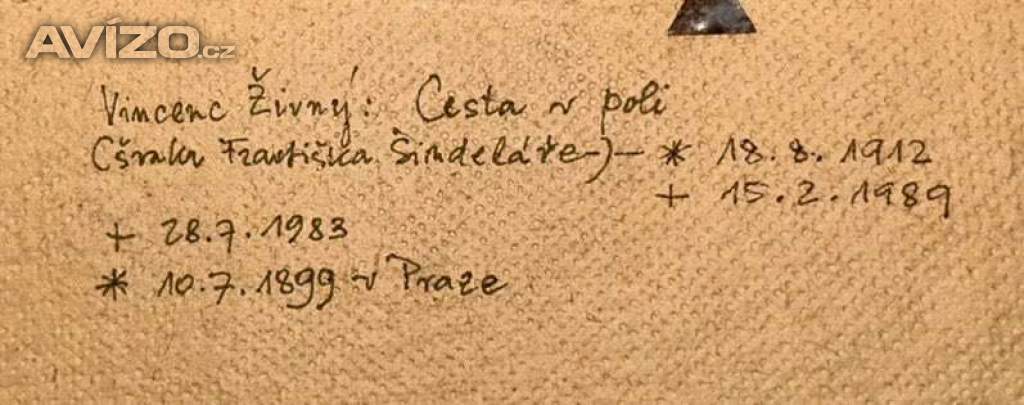 AVÍZO.cz
Vincenc Živný: Cesta v poli
(švakr Františka Šindeláře-)- * 18.8.1912
+ 15.2.1989
+ 28.7.1983
* 10.7.1899 v Praze